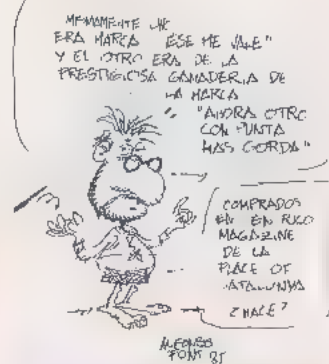 ERA MARCA "ESE ME VALE"
Y EL OTRO ERA DE LA
PRESTIGIOSA GANADERIA DE
LA MARCA
"AHORA OTRO
CON PUNTA
MAS GORDA"
COMPRADOS
EN EN RICO
MAGAZINE
DE LA
PLACE OF
¿HACE?
ALFONSO
FONT 85